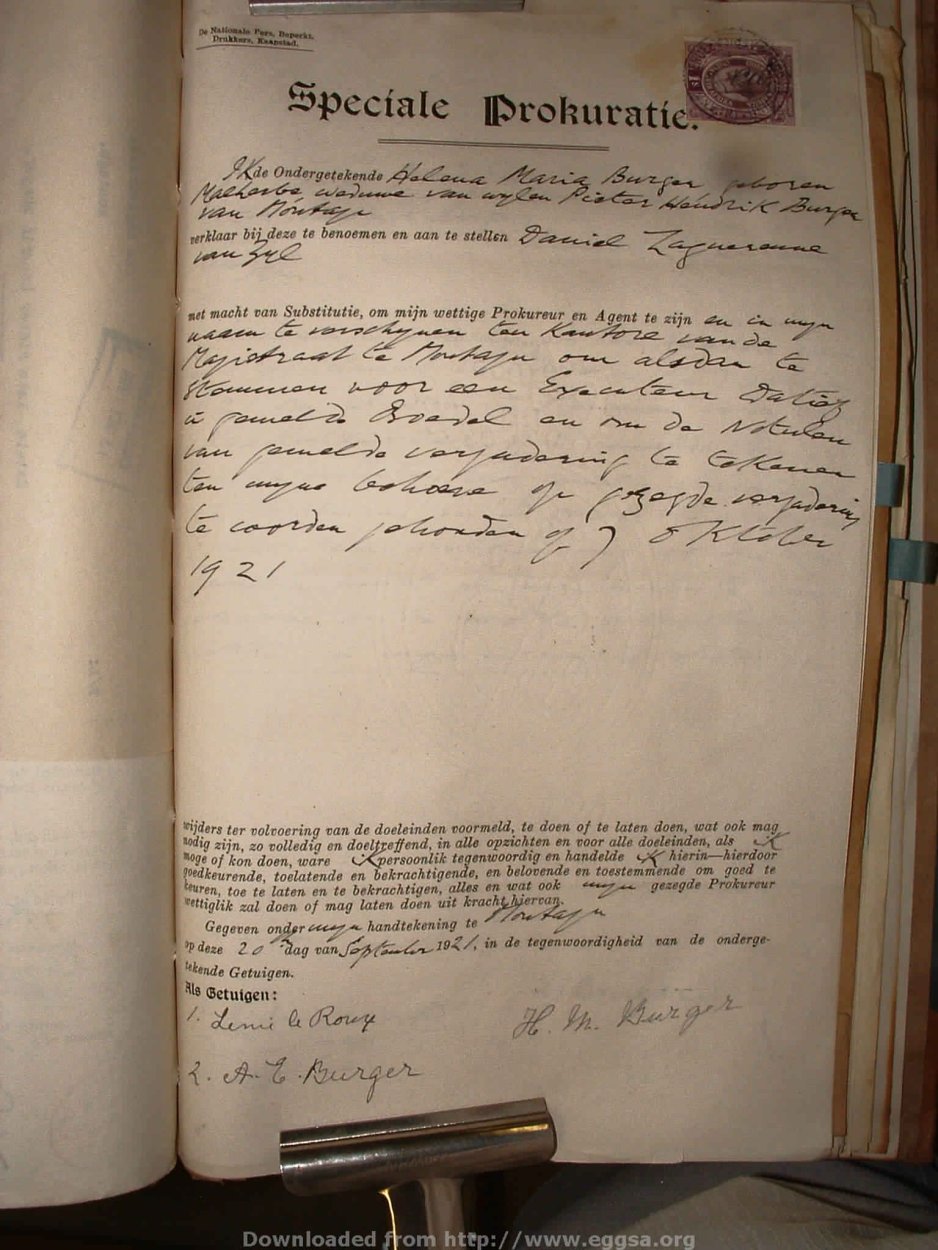 De Nationale Pers, Beperkt,
Drukkers, Kaapstad.
Speciale Prokuratie.
Ik de Ondergetekende Helena Maria Burger geboren
Malherbe weduwe van wylen Pieter Hendrik Burger
van Montagu
verklaar bij deze te benoemen en aan te stellen Daniel
van Zyl
met macht van Substitutie, om mijn wettige Prokureur en Agent te zijn en in myn
naam te verschynen ten Kantore van de
Magistraat te Montagu om alsdan te
stemmen voor een Executeur Datief
in gemelde Boedel en om de Notulen
van gemelde vergadering te tekenen
ten myne behoeve op gezegde vergadering
te worden gehouden op 7 Oktober
1921
wijders ter volvoering van de doeleinden voormeld, te doen of te laten doen, wat ook mag
nodig zijn, zo volledig en doeltreffend, in alle opzichten en voor alle doeleinden, als ik
moge of kon doen, ware ik persoonlik tegenwoordig en handelde ik hierin—hierdoor
goedkeurende, toelatende en bekrachtigende, en belovende en toestemmende om goed te
keuren, toe te laten en te bekrachtigen, alles en wat ook myn gezegde Prokureur
wettiglik zal doen of mag laten doen uit kracht hiervan.
Gegeven onder myn handtekening te Montagu
op deze 20 dag van September 1921, in de tegenwoordigheid van de onderge-
tekende Getuigen.
Als Getuigen:
1. Lenie le Roux
H. M. Burger
2. A. E. Burger
Downloaded from http://www.eggsa.org